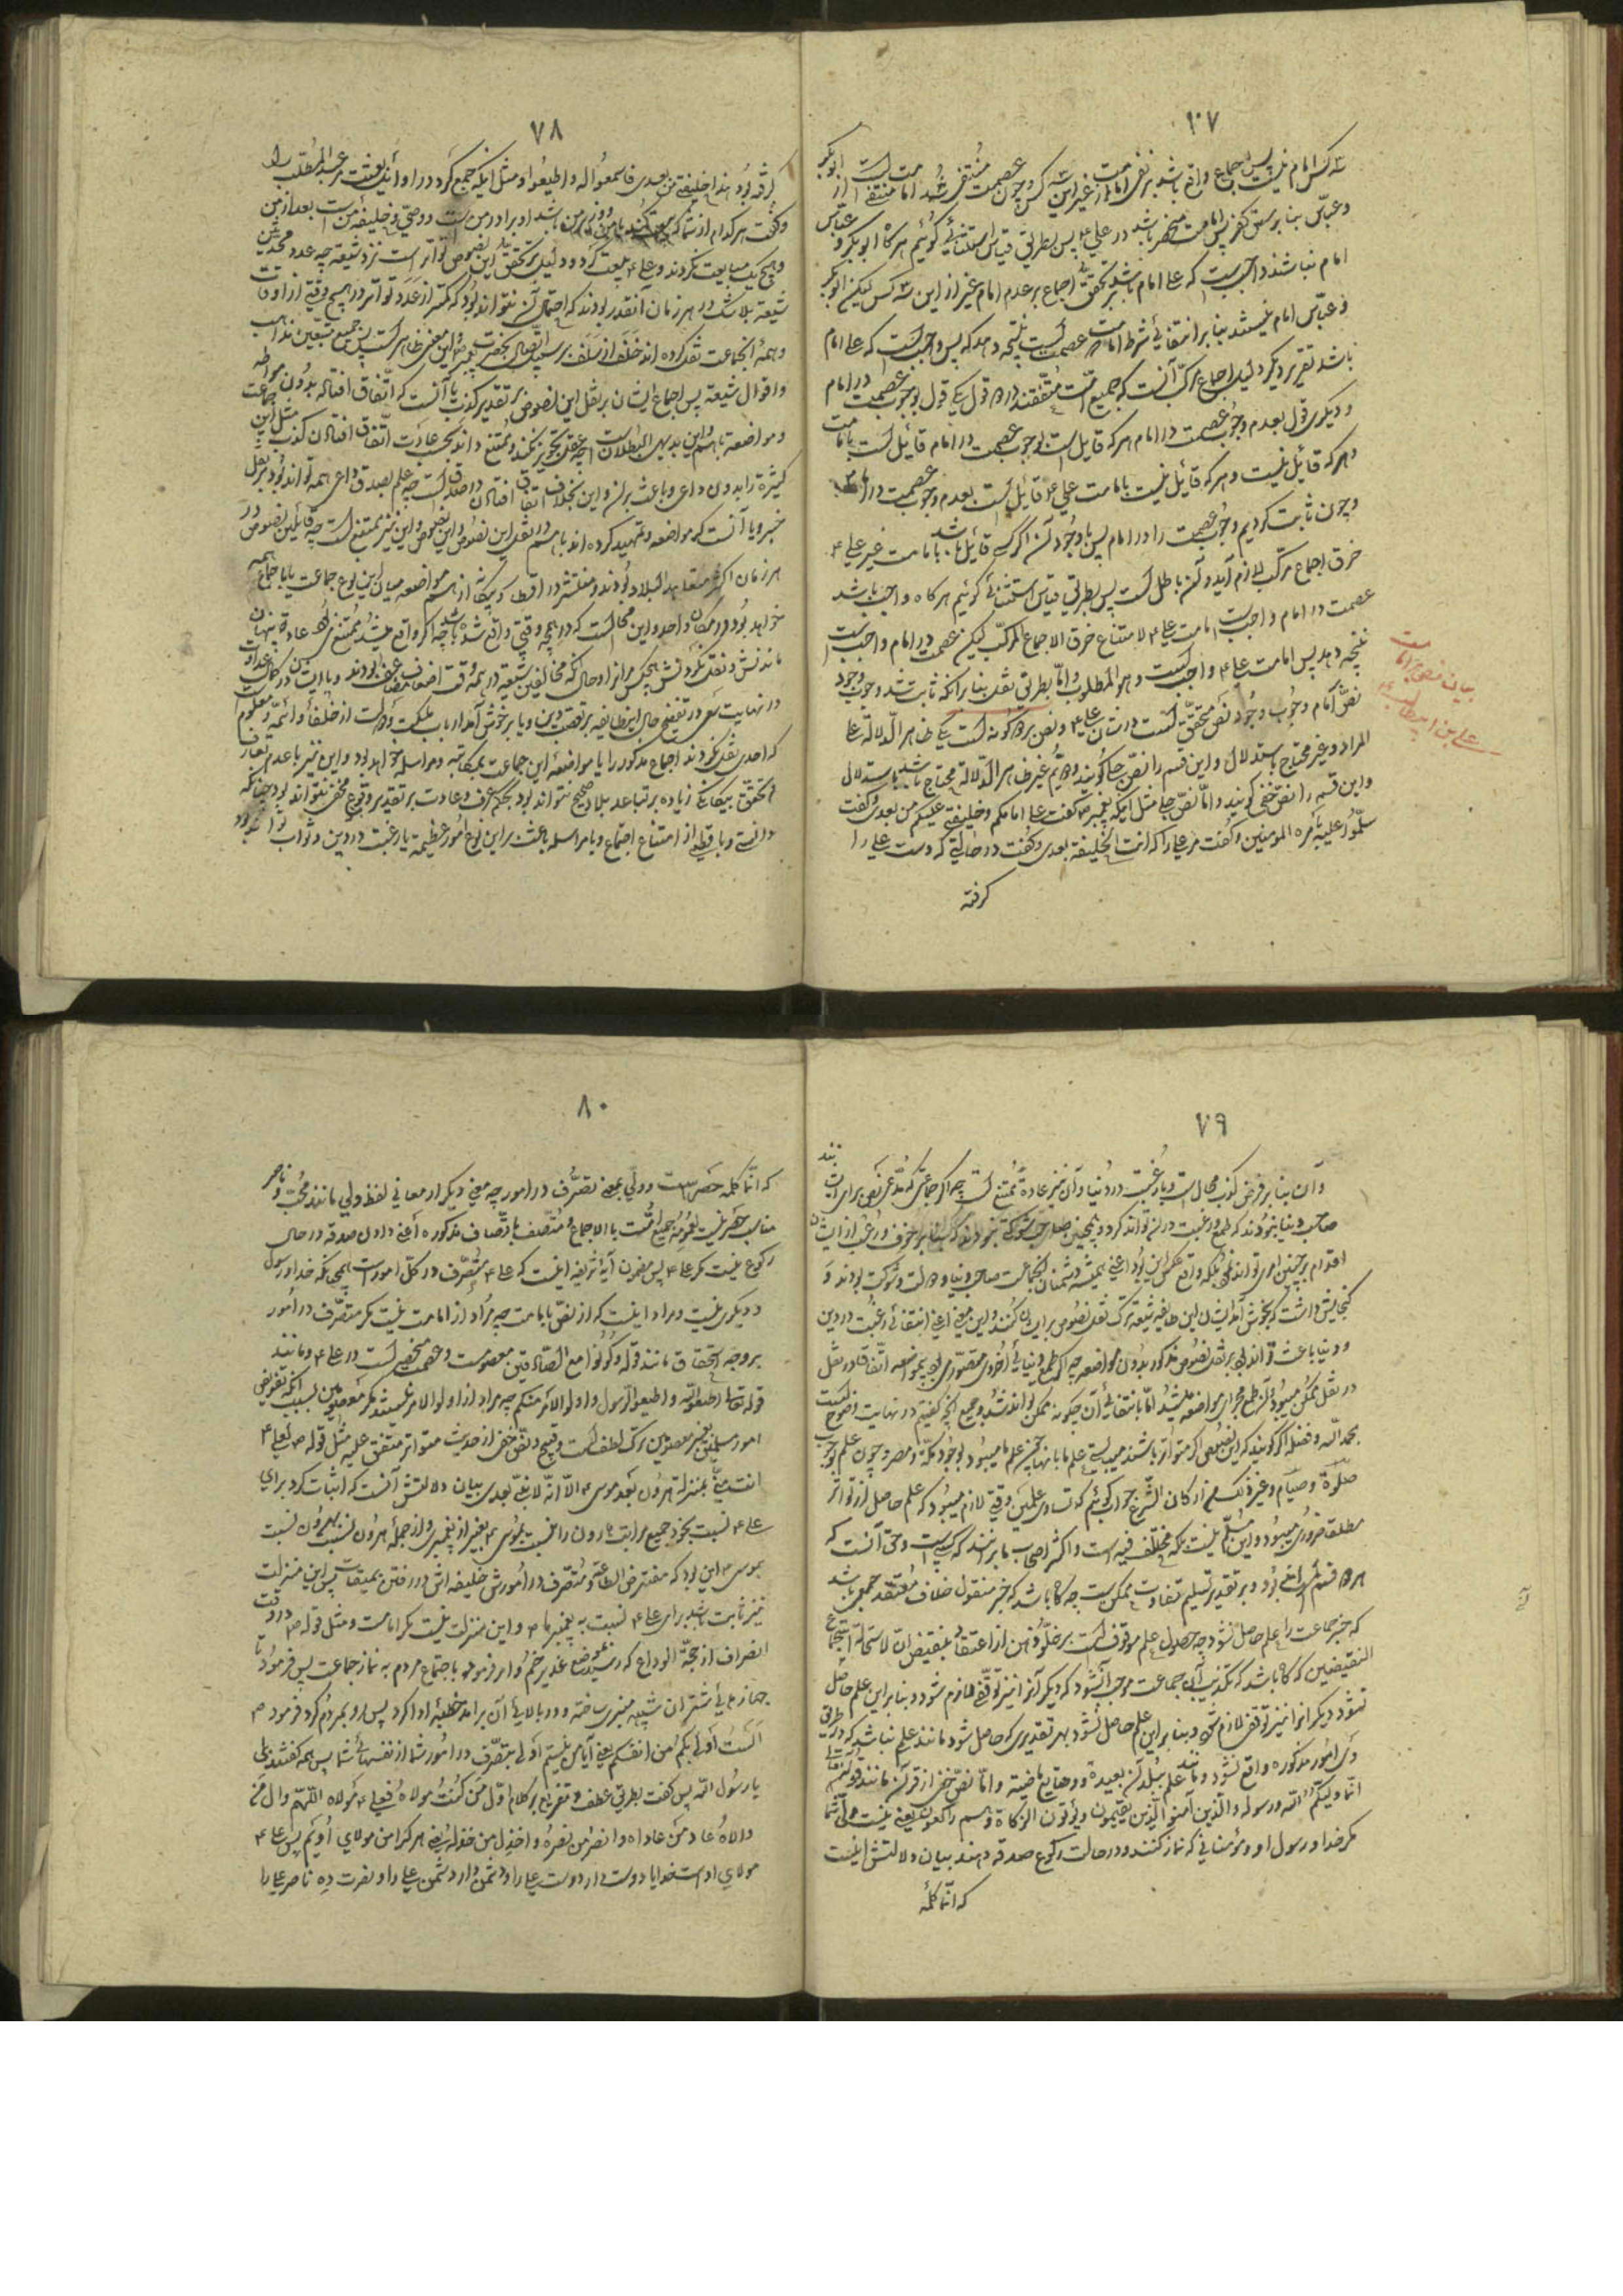 ٧٧
سه کس امام نیست پس اجماع واقع باشد بر نفی امامت از غیر این سه کس و چون عصمت منتفی شد امامت از ابوبکر
و عباس بنا بر سبق کفر پس امامت منحصر باشد در علی ۴ پس بطریق قیاس استثنائی گوئیم هرگاه ابوبکر و عباس
امام نباشند واجبست که علی امام باشد بر تحقق اجماع بر عدم امام غیر از این سه کس لیکن ابوبکر
و عباس امام نیستند بنا بر انتفائی شرط امامت عصمت است نتیجه دهد که پس واجبست که علی امام
باشد تقریر دیگر دلیل اجماع مرکب آنست که جمیع امت متفقند در دو قول یکی قول بوجوب عصمت در امام
و دیگری قول بعدم وجوب عصمت در امام هر که قایل است بوجوب عصمت در امام قائیل است بامامت
هر که قائیل نیست و هر که قائیل نیست بامامت علی ۴ قائیل است بعدم وجوب عصمت در امام
و چون ثابت کردیم وجوب عصمت را در امام پس با وجود آن اگر کسی قائیل باشد بامامت غیر علی ۴
خرق اجماع مرکب لازم آید و آن باطل است پس بطریق قیاس استثنائی گوئیم هرگاه واجب باشد
عصمت در امام واجبست امامت علی ۴ لامتناع خرق الاجماع المرکب لیکن عصمت در امام واجبست
نتیجه دهد پس امامت علی ۴ واجبست و هو المطلوب و اما بطریق نقلی بنا بر آنکه ثابت شد وجوب وجود
نص امام وجوب وجود نص محقق است در شان علی ۴ و نص بر دو کونه است یکی ظاهر الدلالة علی
المراد و غیر محتاج باستدلال و این قسم را نص جلی گویند و دویم غیر ظاهر الدلالة محتاج باشد باستدلال
و این قسم را نص خفی گویند و اما نص جلی مثل اینکه پیغمبر ص گفت علی امامکم و خلیفتی علیکم من بعدی و گفت
سلموا علیه بامره المومنین و گفت مر علی را که انت الخلیفة بعدی و گفت در حالتی که دست علی را
گرفته
بیان نص بر امامت
علی بن ابیطالب ۴
٧٨
گرفته بود هذا خلیفتی من بعدی فاسمعوا له و اطیعوا و مثل اینکه جمع کرد در اوایل بعثت مر عبد المطلب را
و گفت هر کدام از شما که بیعت کند با من و وزیر من باشد او برادر من است و وصی و خلیفه من است بعد از من
و هیچ یک مبایعت نکردند و علی ۴ بیعت کرد و دلیل بر تحقق این نصوص تواتر است نزد شیعه چه عدد محدثین
شیعه بلا شک در هر زمان آنقدر بودند که احتمال آن نتواند بود که کمتر از عدد تواتر در هیچ وقتی از اوقات
و همه آنجماعت نقل کرده اند خلف از سلف بر سبیل اتصال بحضرت پیغمبر ص و این معنی ظاهر است پیش جمیع متتبعین مذاهب
و اقوال شیعه پس اجماع ایشان بر نقل این نصوص بر تقدیر کذب یا آنست که اتفاق افتاده بدون مواطئه
و مواضعه با هم و این بدیهی البطلان است چه عقل تجویز نکند و ممتنع داند بحسب عادت اتفاق افتادن کذب مثل این جماعت
کثیره را بدون داعی و باعث بر آن و این بخلاف اتفاق افتادن در صدق است چه علم بصدق داعی همه تواند بود بر نقل
خبر و یا آنست که مواضعه و تمهید کرده اند با هم در نقل این نصوص و این نیز ممتنع است چه قائلین نصوص در
هر زمان اکثر متباعد البلاد بودند و منتشر در اقطار و بیگانه از هم مواضعه میان این نوع جماعت یا باجماع همه
خواهد بود در مکان واحد و این محال است که در هیچ وقتی واقع شده باشد چه اگر واقع میشد ممتنع بود عادة پنهان
ماندنش و نقل نکردنش هیچکس مر آنرا و حال آنکه مخالفین شیعه در همه وقت اضعاف مضاعف بودند و با ایشان در کمال عداوت
در نهایت سعی در تفتیش حال این طایفه بر تعصب دین و یا بر خوش آمد ارباب ملک و دولت از خلفا و ائمه و معلوم است
که احدی نقل نکردند اجماع مذکور را یا مواضعه این جماعت بمکاتبه و مراسله خواهد بود و این نیز با عدم تعارف
و تحقق بیگانگی زیاده بر تباعد بلاد صحیح نتواند بود بحکم عرف و عادت بر تقدیر وقوع مخفی نتواند بود چنانکه
دانستی و با قطع از امتناع اجتماع و یا مراسله باعث بر این نوع امور عظیمه یا رغبت در دین و ثواب تواند بود
٧٩
و آن بنا بر فرض کذب محال است و یا رغبت در دنیا و آن نیز عادة ممتنع است چه اگر جماعتی که مدعی نص برای ایشانند
صاحب دنیا نبودند که طمع و رغبت در آن تواند کرد و همچنین صاحب شوکتی نبودند که بنا بر خوف و رعب از ایشان
اقدام بر چنین امری تواند شد بلکه واقع عکس این بود اعنی همیشه دشمنان آنجماعت صاحب دنیا و دولت و شوکت بودند و
گنجایش داشت که بخوش آمد ایشان این طایفه شیعه ترک نقل نصوص برای اینان کنند و این معنی اعنی انتفائی رغبت در دین
و دنیا باعث تواند بود بر نقل نصوص مذکور بدون مواضعه چه اگر طمع دنیائی اخروی متصور می بود بمواضعه اتفاقا در نقل
در نقل ممکن میبود و آن طمع مجرای مواضعه میشد اما با انتفائی آن چگونه ممکن تواند شد و جمیع آنچه گفتیم در نهایت وضوحست
بحمد الله و فضله اگر گویند که این نصوص اگر متواتر باشند میبایست علم ما بآنها چون علم ما میبود بوجود مکه و مصر و چون علم بوجوب
صلوة و صیام و غیر ذلک من ارکان الشرع جواب گوئیم که تساوی علمین وقتی لازم میبود که علم حاصل از تواتر
مطلقا ضروری میبود و این مسلم نیست بلکه مختلف فیه است و اکثر اصحاب ما بر آنند که کسبیست و حق آنست که
هر دو قسم تواند بود و بر تقدیر تسلیم تفاوت ممکنست چه گاه باشد که خبر منقول خلاف معتقد جمعی باشد
که خبر جماعت را علم حاصل نشود چه حصول علم موقوف است بر خلو ذهن از اعتقاد بنقیض آن لاستحالة اجتماع
النقیضین که گاه باشد که تکذیب آن جماعت موجب آن شود که دیگر آنرا نیز توقفی لازم شود و بنا بر این علم حاصل
نشود دیگر آنرا نیز توقفی لازم شود و بنا بر این علم حاصل نشود بهر تقدیری که حاصل شود مانند علم نباشد که در طرق
وی امور مذکوره واقع نشود و مانند علم ببلدان بعیده و وقایع ماضیه و اما نص خفی از قرآن مانند قوله تعالی
انما ولیکم الله و رسوله والذین آمنو الذین یقیمون و یؤتون الزکاة و هم راکعون یعنی نیست ولی شما
مگر خدا و رسول او و مؤمنانی که نماز کنند و در حالت رکوع صدقه دهند بیان دلالتش اینست
که انما کلمه
٨٠
که انما کلمه حصر است و ولی بمعنی تصرف در امور چه معنی دیگر از معانی لفظ ولی مانند محب و ناصر
مناسب حصر نیست لعمومه جمیع امت یا الاجماع و متصف باوصاف مذکوره اعنی دادن صدقه در حال
رکوع نیست مگر علی ۴ پس مضمون آیه شریفه اینست که علی ۴ متصرف در کل امور است همچنانکه خدا و رسول
و دیگری نیست و مراد اینست که از نص بامامت چه مراد از امامت نیست مگر متصرف در امور
بر وجه استحقاق مانند قوله و کونوا مع الصادقین معصومست و عصمت مختص است در علی ۴ و مانند
قوله تعالی اطیعوا الله و اطیعوا الرسول و اولو الامر منکم چه مراد از اولو الامر نیستند مگر معصومین بسبب آنکه تفویض
امور مسلمین بغیر معصومین ترک لطف است و قبیح و نص خفی از حدیث متواتر متفق علیه مثل قوله ص لعلی ۴
انت منی بمنزلة هرون بعد موسی ۴ الا انه لا نبی بعدی بیان دلالتش آنست که اثبات کرد برای
علی ۴ نسبت بخود جمیع مراتب هارون را نسبت بموسی ۴ بغیر از پیغمبری و از جمله هرون نسبت بهرون نسبت
بموسی ۴ این بود که مفترض الطاعة و متصرف در امورش خلیفه اش در رفتن بمیقات پس این منزلت
نیز ثابت باشد برای علی ۴ نسبت به پیغمبر ما ص و این منزلت نیست مگر امامت و مثل قوله ص در وقت
انصراف از حجة الوداع که رسید بموضع غدیر خم و امر فرمود باجتماع مردم به نماز جماعت پس فرمود تا
جهازهای شتران شبیه منبری ساخته و در بالای آن برآمده خطبه ادا کرد پس رو بمردم کرد و فرمود ص
الست اولی بکم من انفسکم یعنی آیا من نیستم اولی بتصرف در امور شما از نفسهای شما پس همه گفتند بلی
یا رسول الله پس گفت بطریق عطف و تفریع بر کلام اول من کنت مولاه فعلی ۴ مولاه اللهم وال من
والاه و عاد من عاداه و انصر من نصره و اخذل من خذله یعنی هر که را من مولای اویم پس علی ۴
مولای اوست خدایا دوست دار دوست علی را و دشمن دار دشمن علی را و نصرت ده ناصر علی را